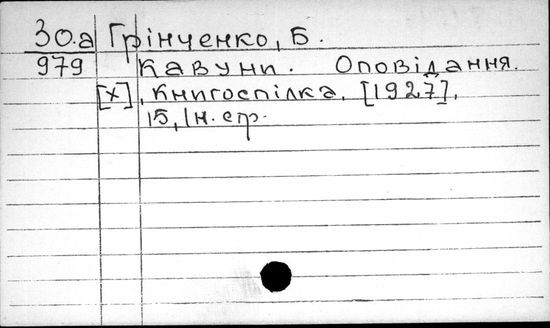 30.а Грінченко, Б.
979 Кавуни. Оповідання.
[х], Книгоспілка, [1927],
15, 1 н. стр.